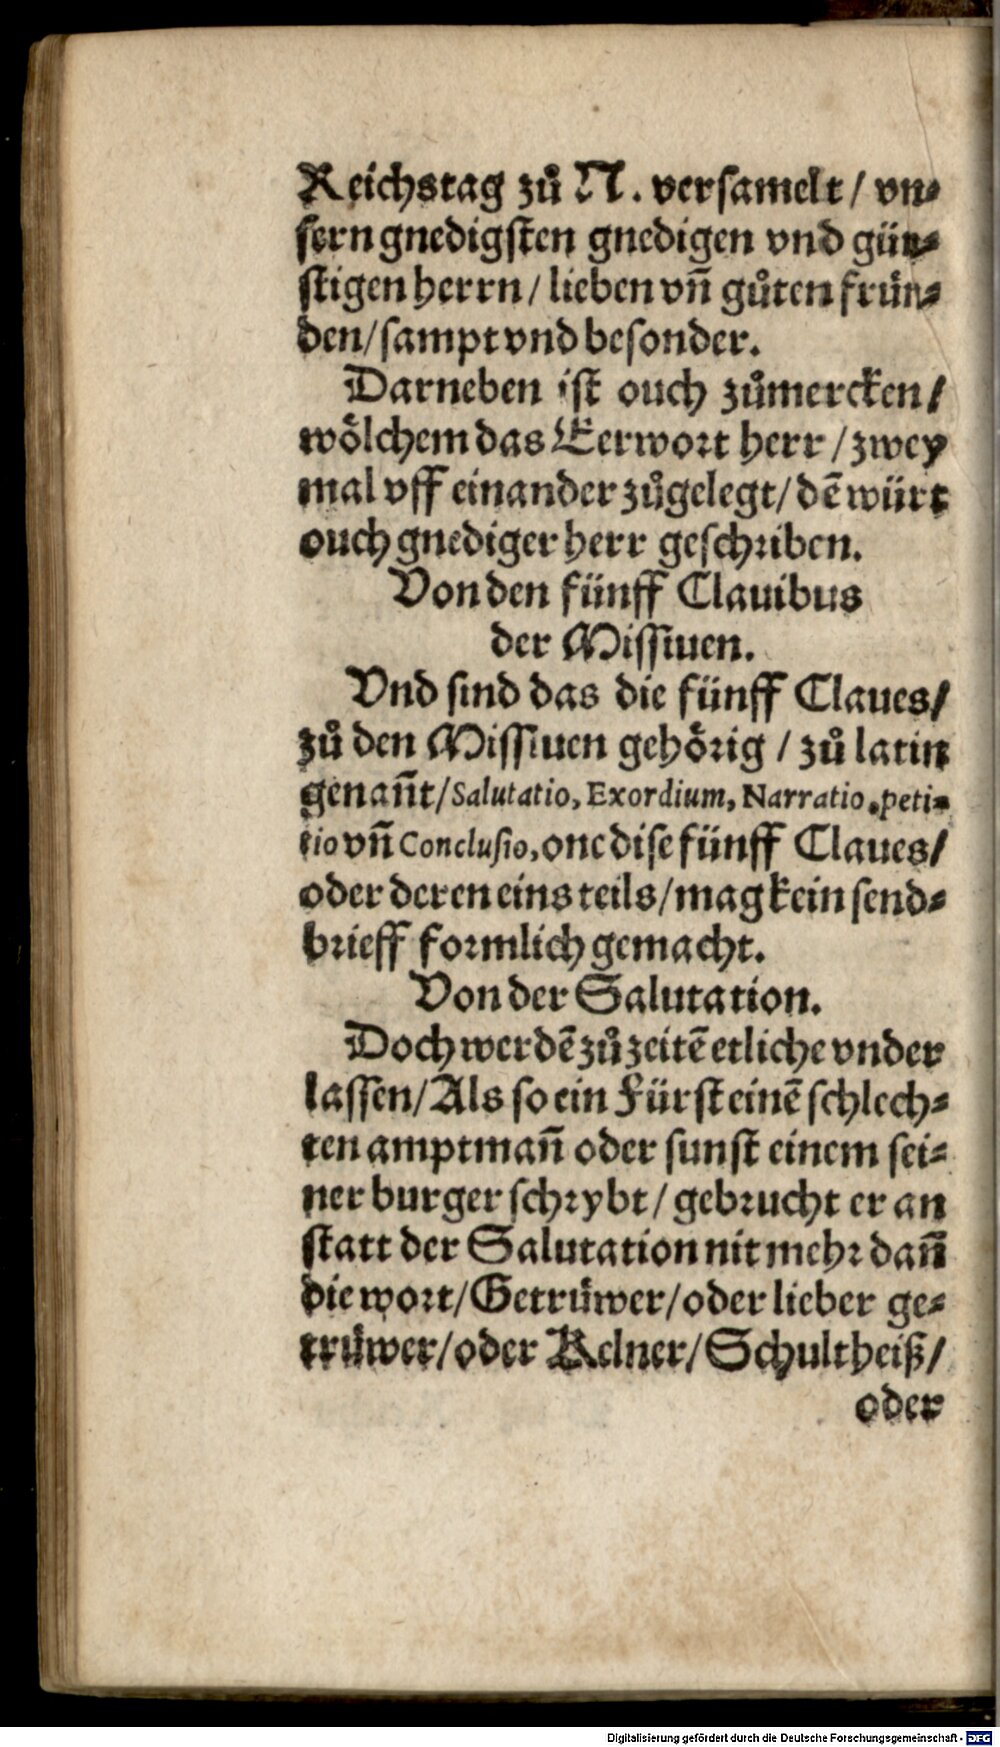 Reichstag zů N. versamelt / vn⸗
sern gnedigsten gnedigen vnd gün⸗
stigen herrn / lieben vn̄ gůten frün⸗
den / sampt vnd besonder.
Darneben ist ouch zůmercken /
wölchem das Eerwort herr / zwey
mal vff einander zůgelegt / dē würt
ouch gnediger herr geschriben.
Von den fünff Clauibus
der Missiuen.
Vnd sind das die fünff Claues /
zů den Missiuen gehörig / zů latin
genañt / Salutatio, Exordium, Narratio, peti⸗
tio vn̄ Conclusio, one dise fünff Claues /
oder deren eins teils / mag kein send⸗
brieff formlich gemacht.
Von der Salutation.
Doch werdē zůzeitē etliche vnder
lassen / Als so ein Fürst einē schlech⸗
ten amptman̄ oder sunst einem sei⸗
ner burger schrybt / gebrucht er an
statt der Salutation nit mehr dan̄
die wort / Getrüwer / oder lieber ge⸗
trüwer / oder Kelner / Schultheiß /
oder
Digitalisierung gefördert durch die Deutsche Forschungsgemeinschaft - DFG